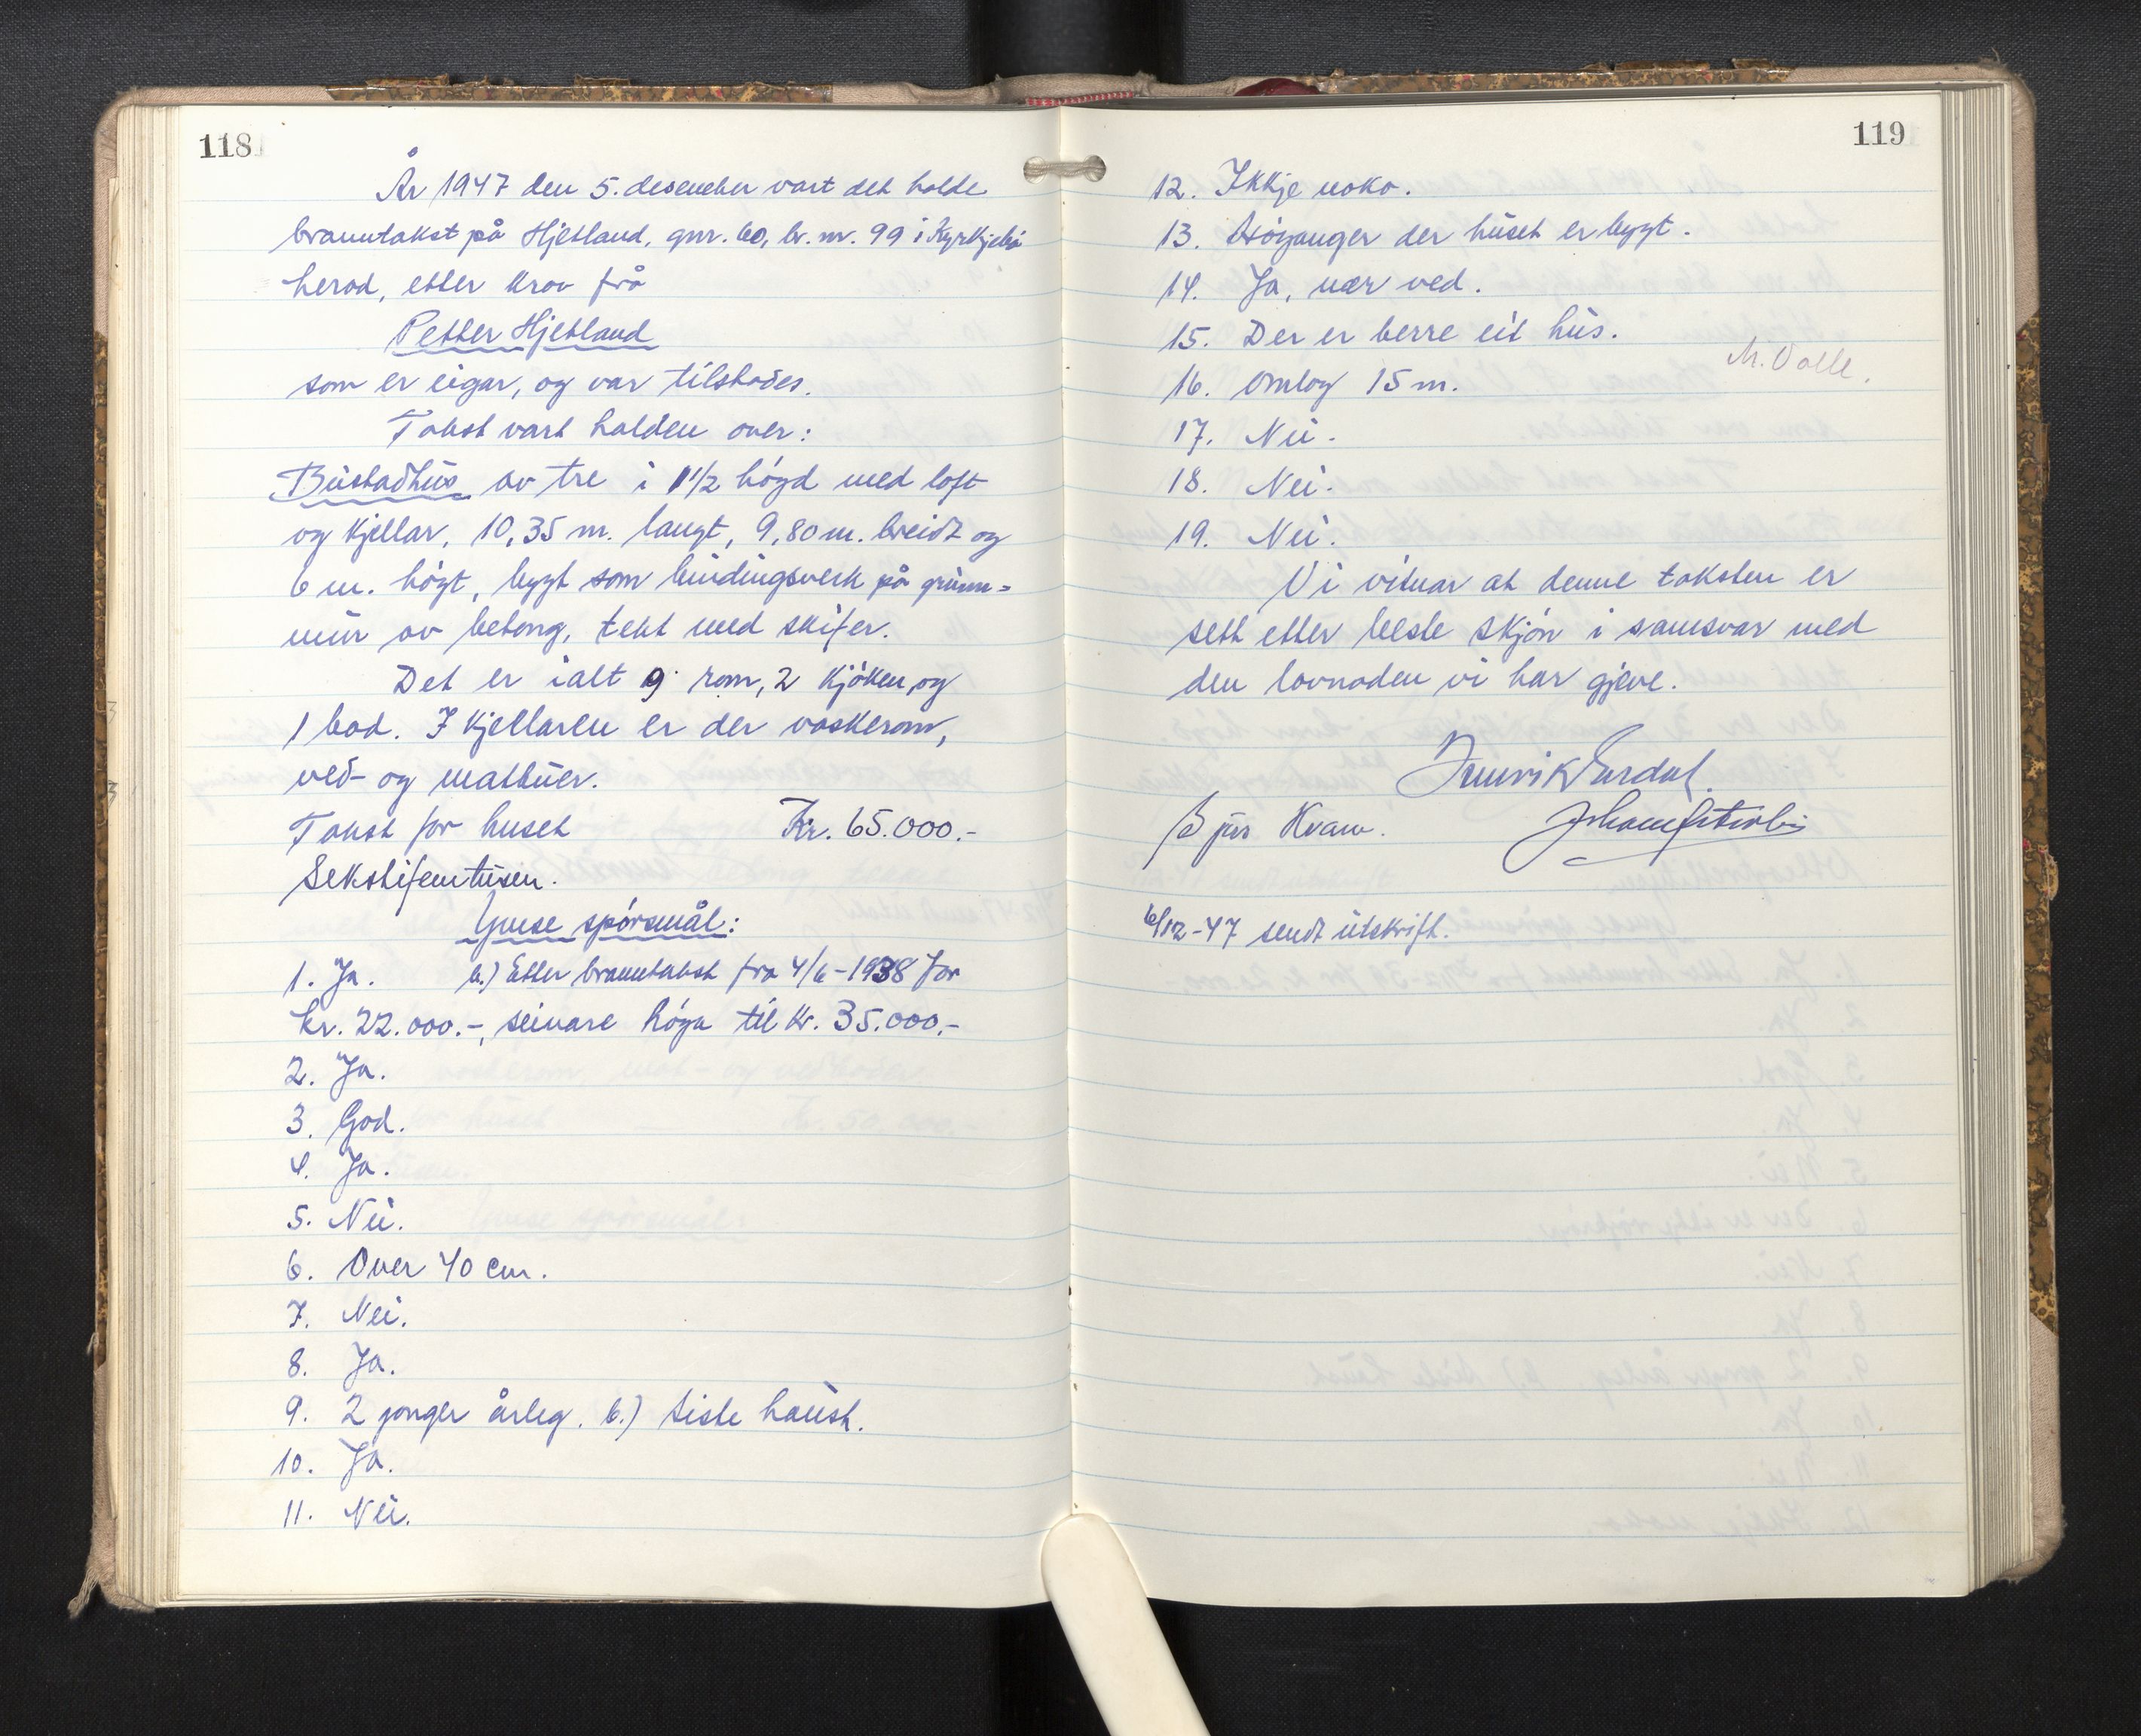 118
År 1947 den 5. desember vart det halde
branntakst på Hjetland, gnr. 60, br. nr. 99 i Kyrkjebø
herad, etter krav frå
Petter Hjetland
som er eigar, og var tilstades.
Takst vart halden over:
Bustadhus av tre i 1 1/2 høgd med loft
og kjellar, 10,35 m. langt, 9,80 m. breidt og
6 m. høgt, bygt som bindingsverk på grunn=
mur av betong, tekt med skifer.
Det er ialt 9 rom, 2 kjøken, og
1 bad. I kjellaren er der vaskerom,
ved- og matbuer.
Takst for huset Kr. 65.000.-
Sekstifemtusen.
Ymse spørsmål:
1. Ja. b.) Etter branntakst fra 4/6-1938 for
kr. 22.000.-, seinare høga til kr. 35.000.-
2. Ja.
3. God.
4. Ja.
5. Nei.
6. Over 40 cm.
7. Nei.
8. Ja.
9. 2 gonger årleg. b.) Siste haust.
10. Ja.
11. Nei.
119
12. Ikkje noko.
13. Høyanger der huset er bygt.
14. Ja, nær ved.
15. Der er berre eit hus.
M. Valle.
16. Omlag 15 m.
17. Nei.
18. Nei.
19. Nei.
Vi vitnar at denne taksten er
sett etter beste skjøn i samsvar med
den lovnaden vi har gjeve.
Kvam.
6/12-47 sendt utskrift.